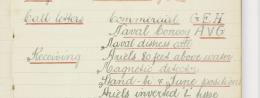 Call letters Commercial G.E.H
Naval Convoy A V G
Naval distress call
Receiving Ariels 80 feet above water
Magnetic detector
Stand-bi & Tune positions
Ariels inverted L type